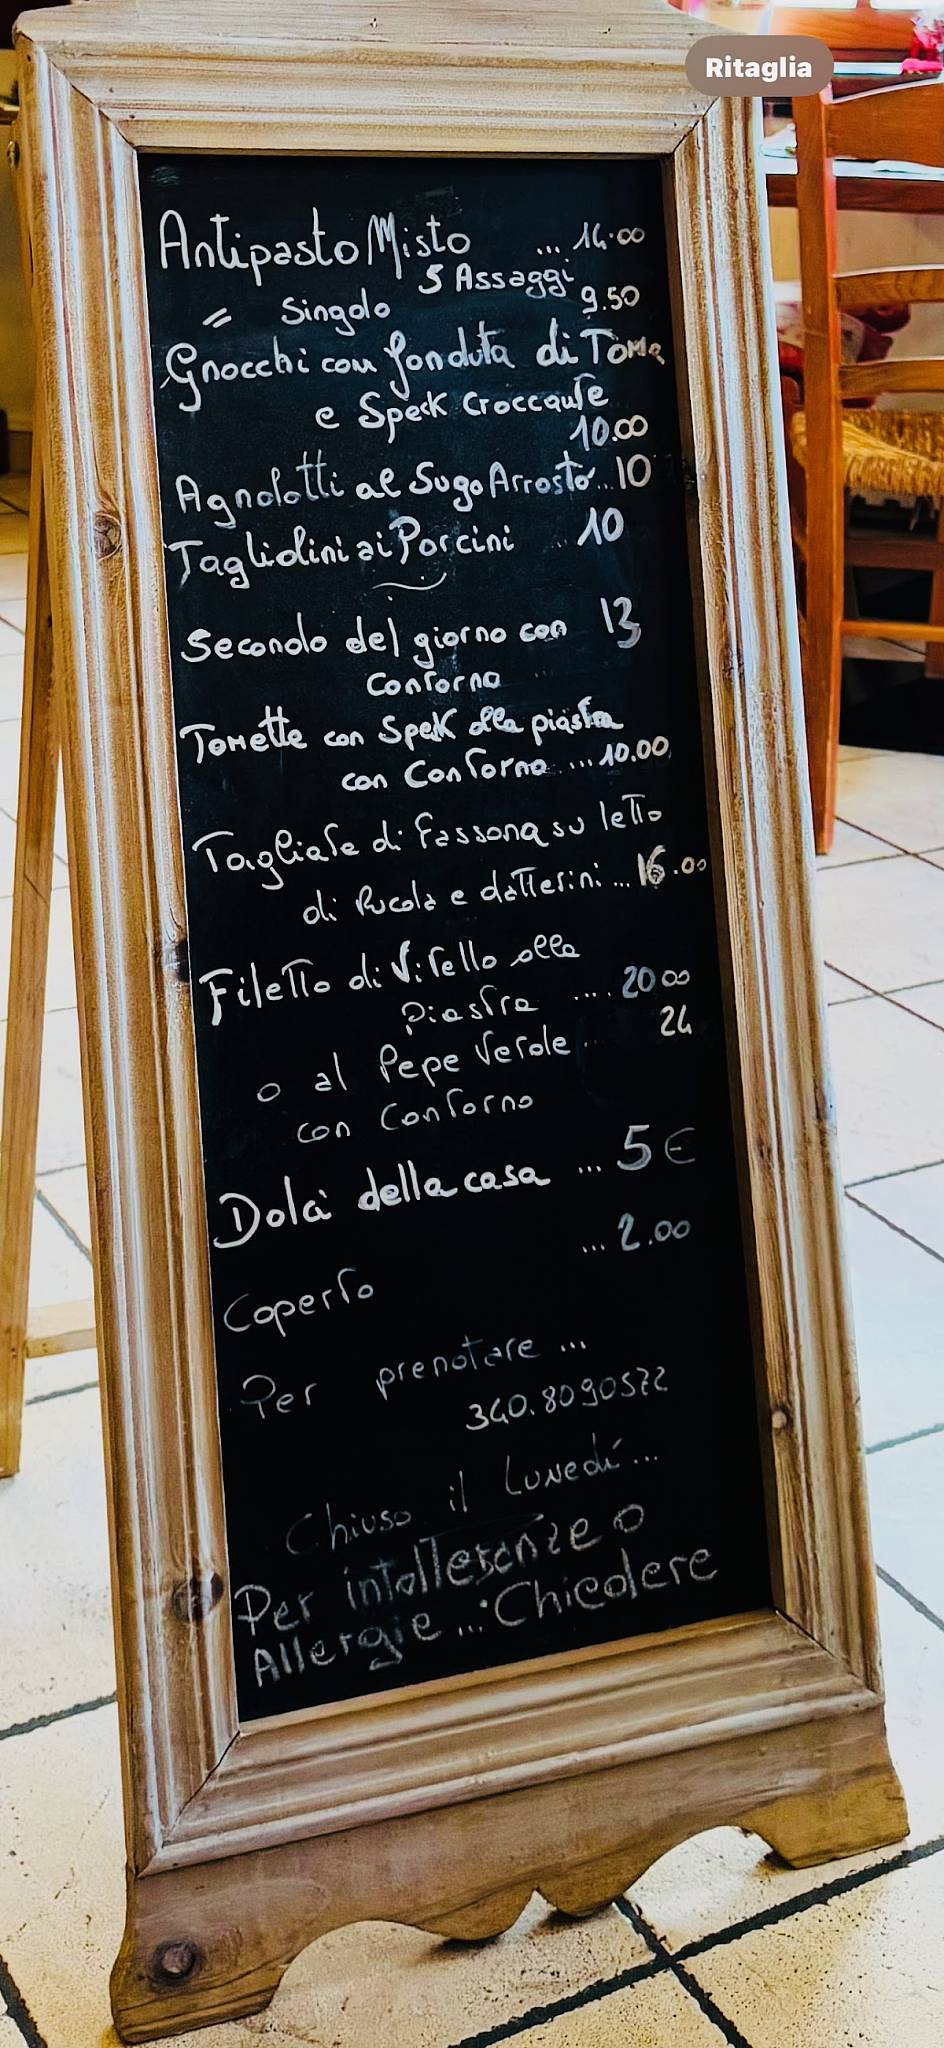 Ritaglia
Antipasto Misto ... 14.00
5 Assaggi
= Singolo 9.50
Gnocchi con fonduta di Toma
e Speck Croccante
10.00
Agnolotti al Sugo Arrosto... 10
Tagliolini ai Porcini ... 10
Secondo del giorno con 13
Contorno ...
Tomette con Speck alla piastra
con Contorno ... 10.00
Tagliate di Fassona su letto
di Rucola e datterini ... 16.00
Filetto di Vitello alla
Piastra .... 20 00
o al Pepe Verde .. 24
con Contorno
Dolci della casa ... 5 €
... 2.00
Coperto
Per prenotare ...
340.8090572
Chiuso il Lunedí ...
Per intolleranze o
Allergie ... Chiedere